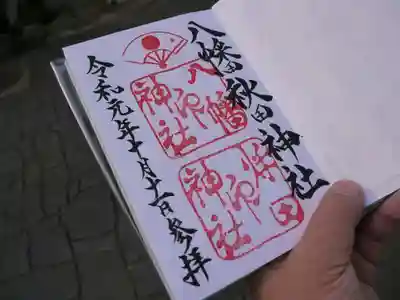 八幡秋田神社
八幡神社之印
秋田神社之印
令和元年十月十一日参拝